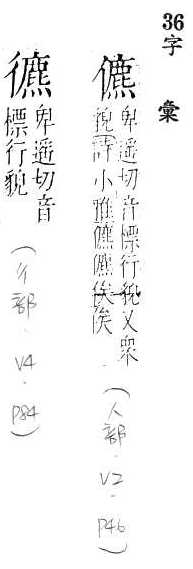 36字彙
儦
卑遙切音標行貌又眾
貌詩小雅儦儦俟俟
(人部.V2.P46)
卑遙切音
標行貌
(彳部.V4.P84)